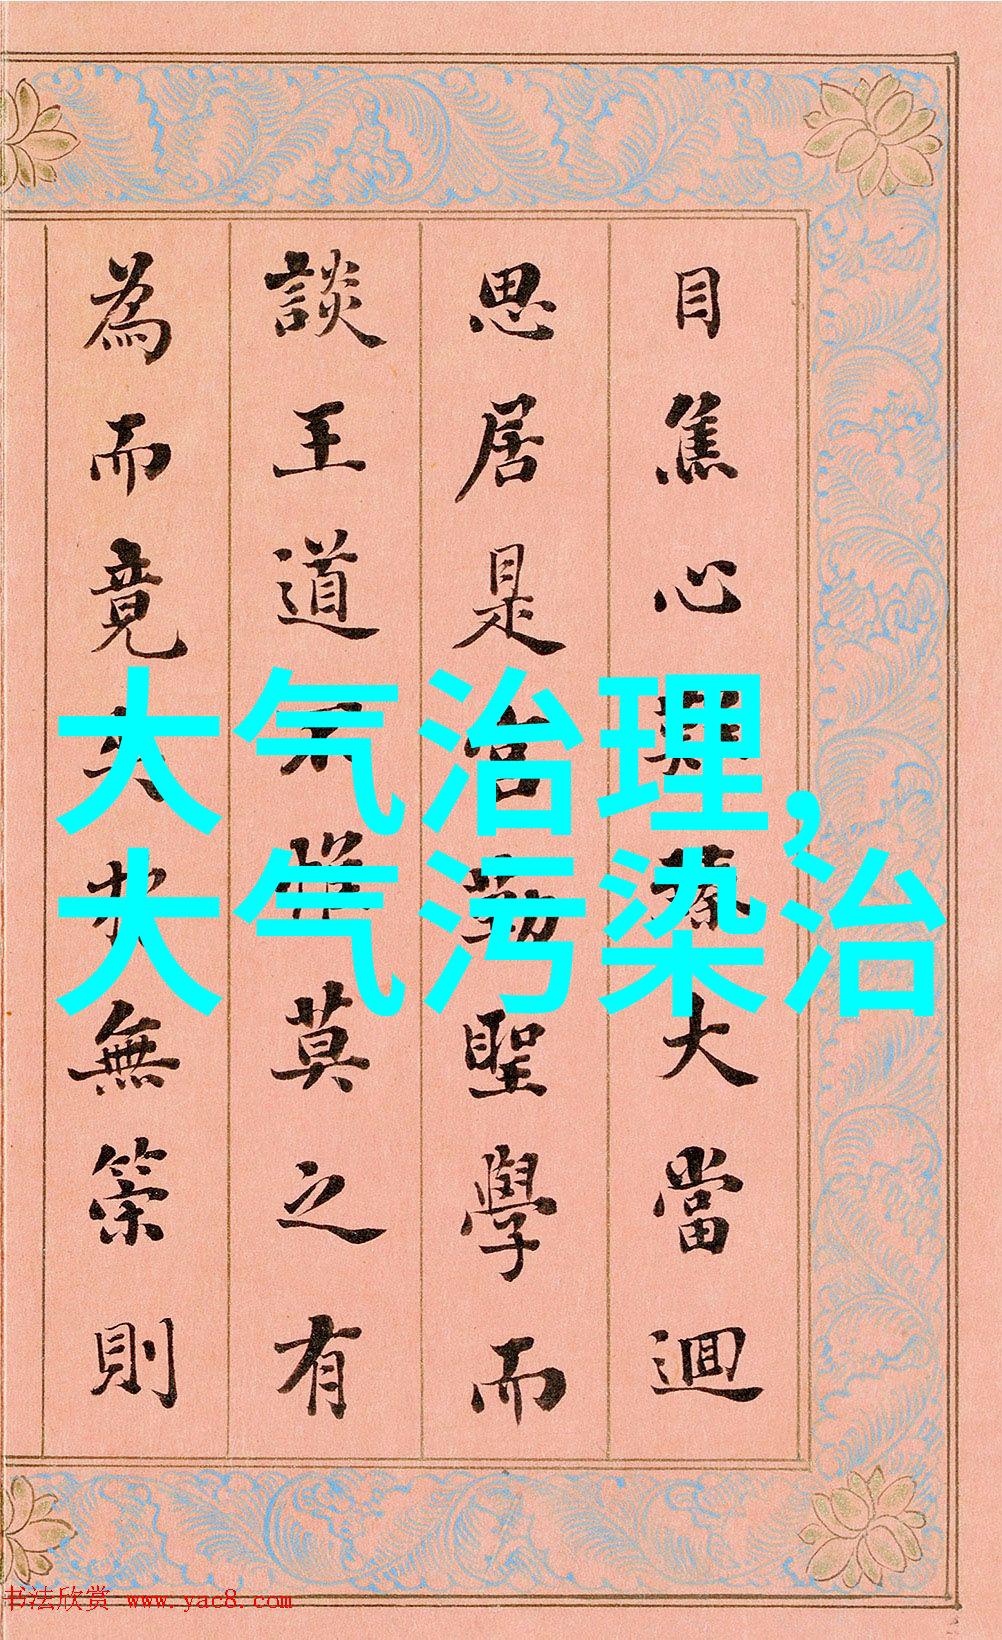 目焦心大當迴
思居是勤聖學而
談王道不莫之有
為而竟無策則
大气治理,
大气污染治
书法欣赏 www.yac8.com